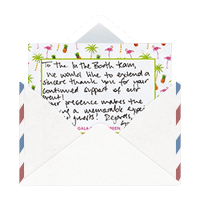 To the In the Booth team,
We would like to extend a
sincere thank you for your
continued support of our
event!
our presence makes the
a memorable experie
guests! Regards,
GALA